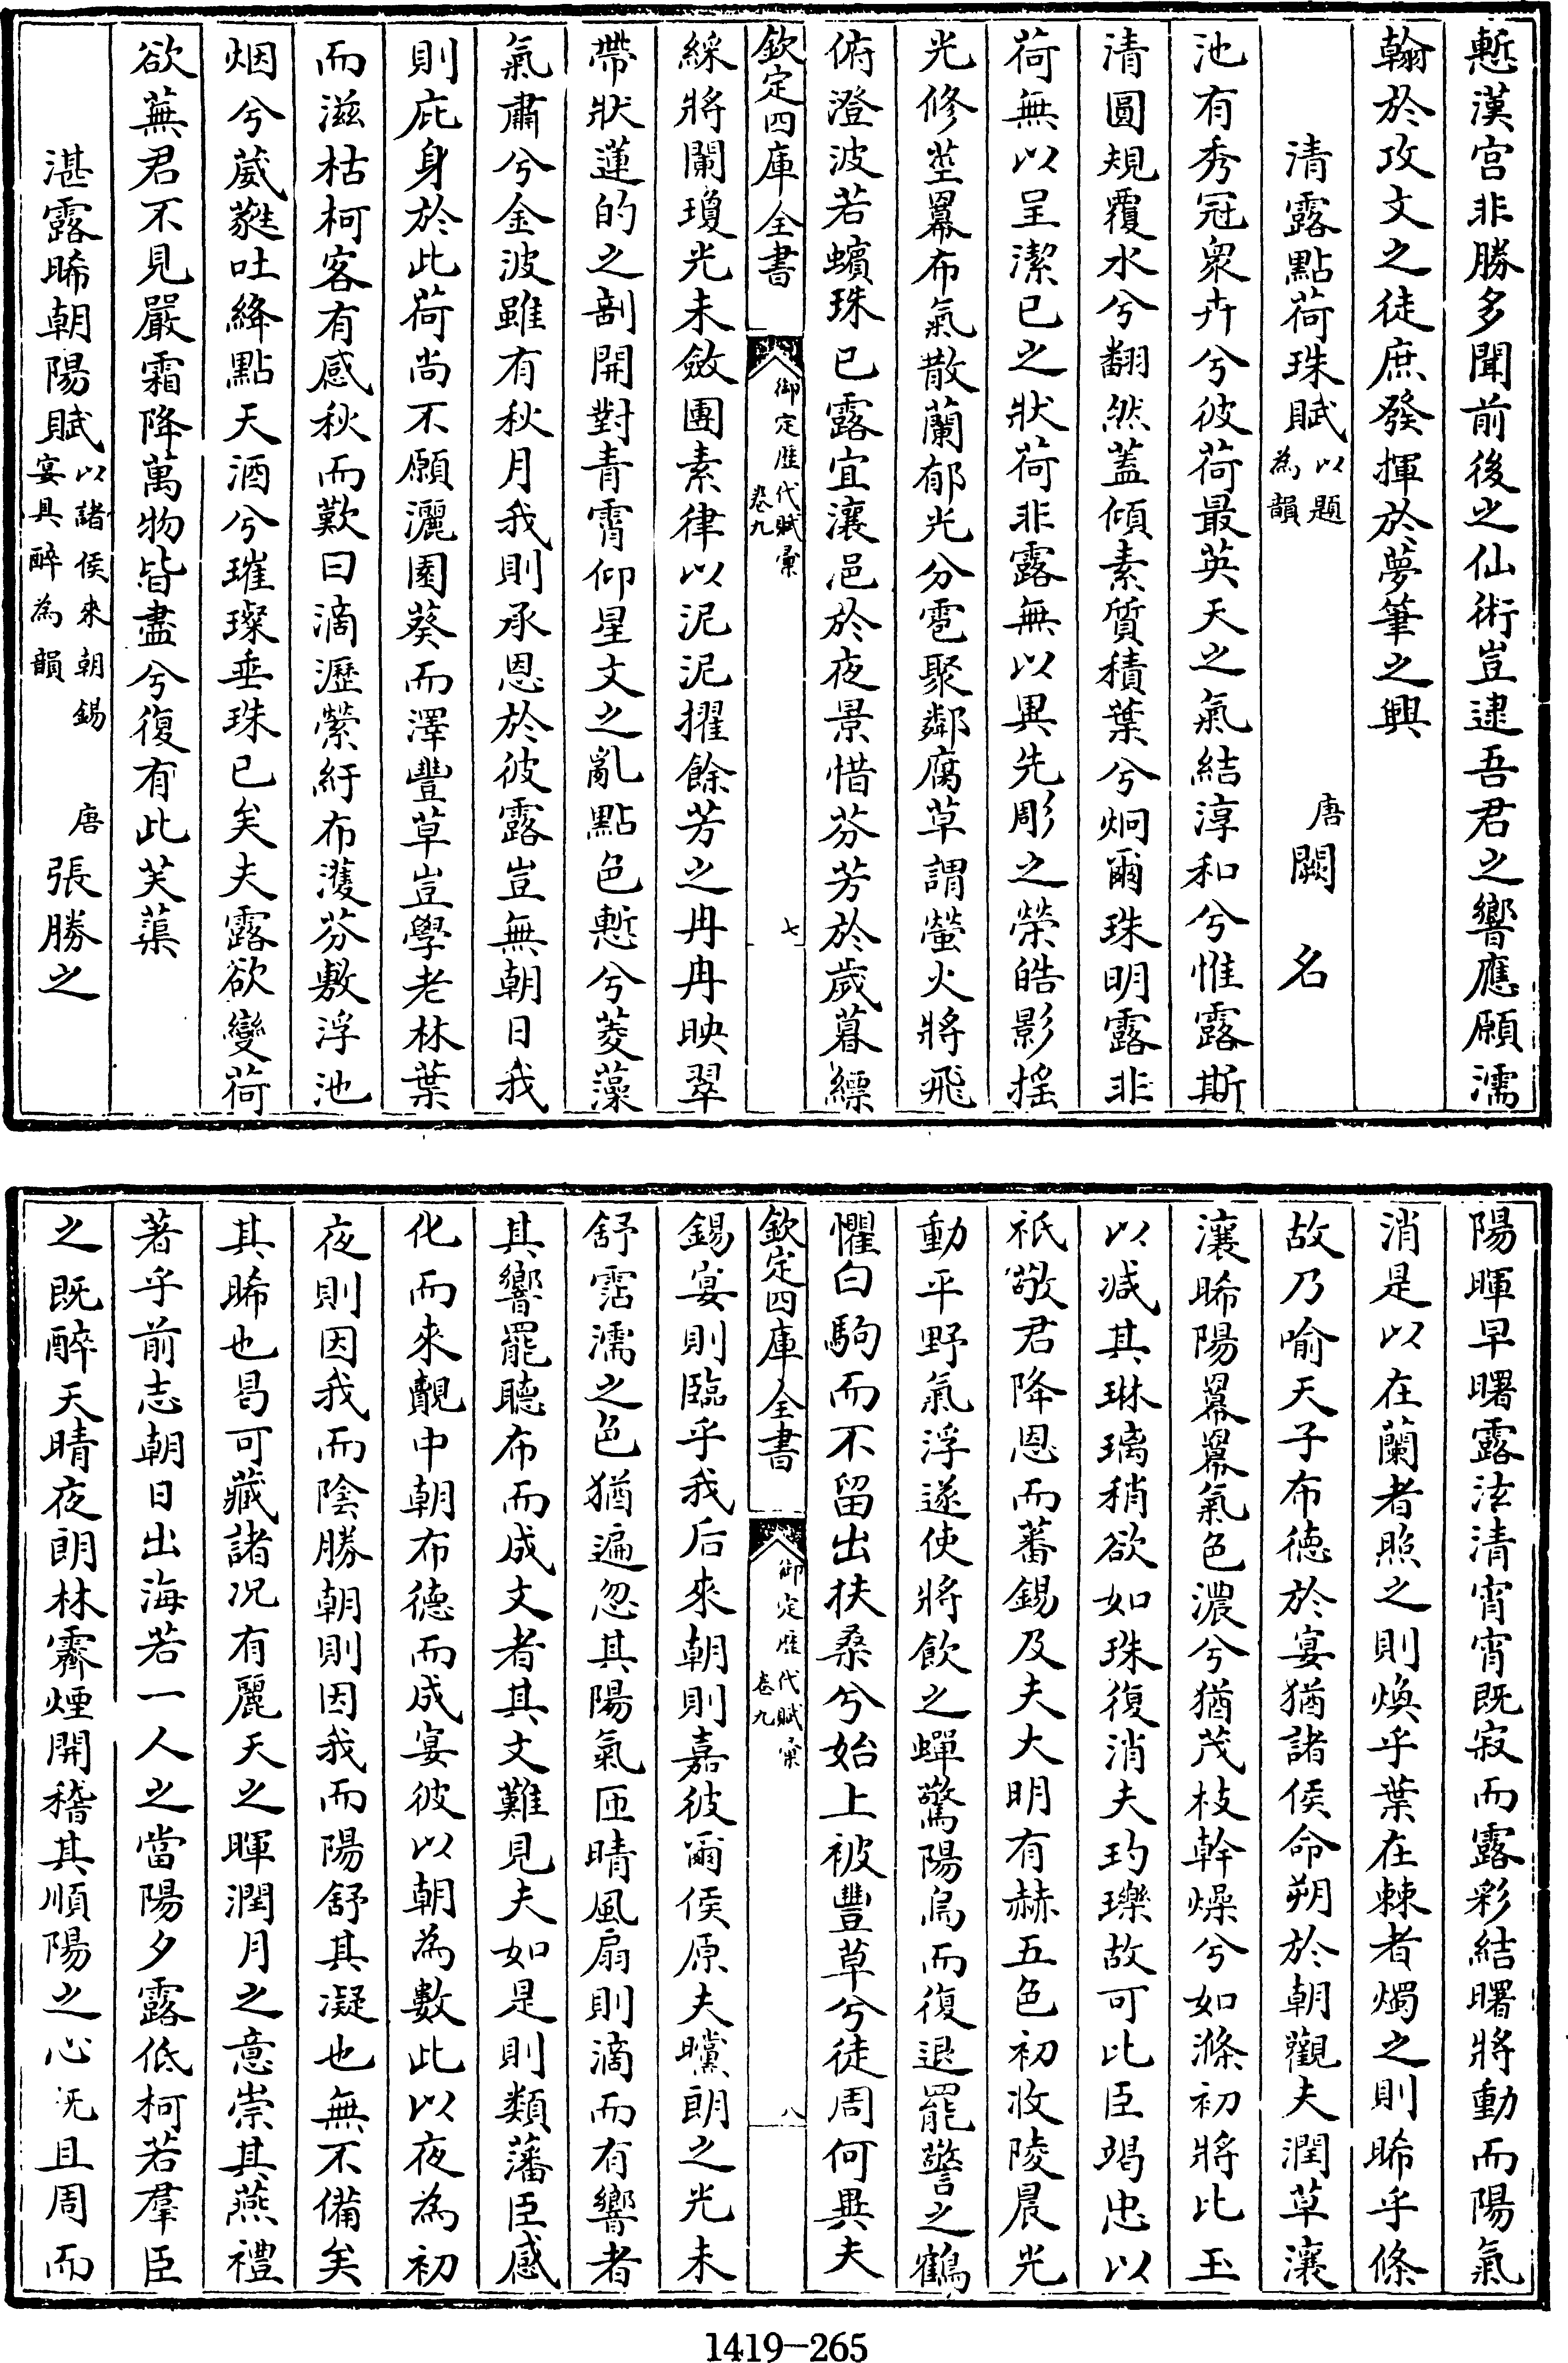 慙漢宫非勝多聞前後之仙術豈逮吾君之響應願濡
翰於攻文之徒庶發揮於夢筆之興
清露點荷珠賦以題為韻 唐 闕名
池有秀冠衆卉兮彼荷最英天之氣結淳和兮惟露斯
清圓規覆水兮翻然蓋傾素質積葉兮炯爾珠明露非
荷無以呈潔已之狀荷非露無以異先彫之榮皓影揺
光修莖羃布氣散蘭郁光分雹聚鄰腐草謂螢火將飛
俯澄波若蠙珠已露宜瀼浥於夜景惜芬芳於歲暮縹
欽定四庫全書 御定歷代賦彙 卷九 七
綵將闌瓊光未斂團素律以泥泥擢餘芳之冉冉映翠
帶狀蓮的之剖開對青霄仰星文之亂點色慙兮菱藻
氣肅兮金波雖有秋月我則承恩於彼露豈無朝日我
則庇身於此荷尚不願灑園葵而澤豐草豈學老林葉
而滋枯柯客有感秋而歎曰滴瀝縈紆布濩芬敷浮池
烟兮葳蕤吐絳點天酒兮璀璨垂珠已矣夫露欲變荷
欲蕪君不見嚴霜降萬物皆盡兮復有此芙蕖
湛露晞朝陽賦以諸侯來朝錫宴具醉為韻 唐 張勝之
陽暉早曙露泫清宵宵既寂而露彩結曙將動而陽氣
消是以在蘭者照之則煥乎葉在棘者燭之則晞乎條
故乃喻天子布德於宴猶諸侯命朔於朝觀夫潤草瀼
瀼晞陽羃羃氣色濃兮猶茂枝幹燥兮如滌初將比玉
以减其琳璃稍欲如珠復消夫玓瓅故可比臣竭忠以
祇敬君降恩而蕃錫及夫大明有赫五色初收陵晨光
動平野氣浮遂使將飲之蟬驚陽烏而復退罷警之鶴
懼白駒而不留出扶桑兮始上被豐草兮徒周何異夫
欽定四庫全書 御定歷代賦彙 卷九 八
錫宴則臨乎我后來朝則嘉彼爾侯原夫曭朗之光未
舒霑濡之色猶遍忽其陽氣匝晴風扇則滴而有響者
其響罷聽布而成文者其文難見夫如是則類藩臣感
化而來覿中朝布德而成宴彼以朝為數此以夜為初
夜則因我而陰勝朝則因我而陽舒其凝也無不備矣
其晞也曷可藏諸况有麗天之暉潤月之意崇其燕禮
著乎前志朝日出海若一人之當陽夕露低柯若羣臣
之既醉天晴夜朗林霽煙開稽其順陽之心既且周而
1419-265